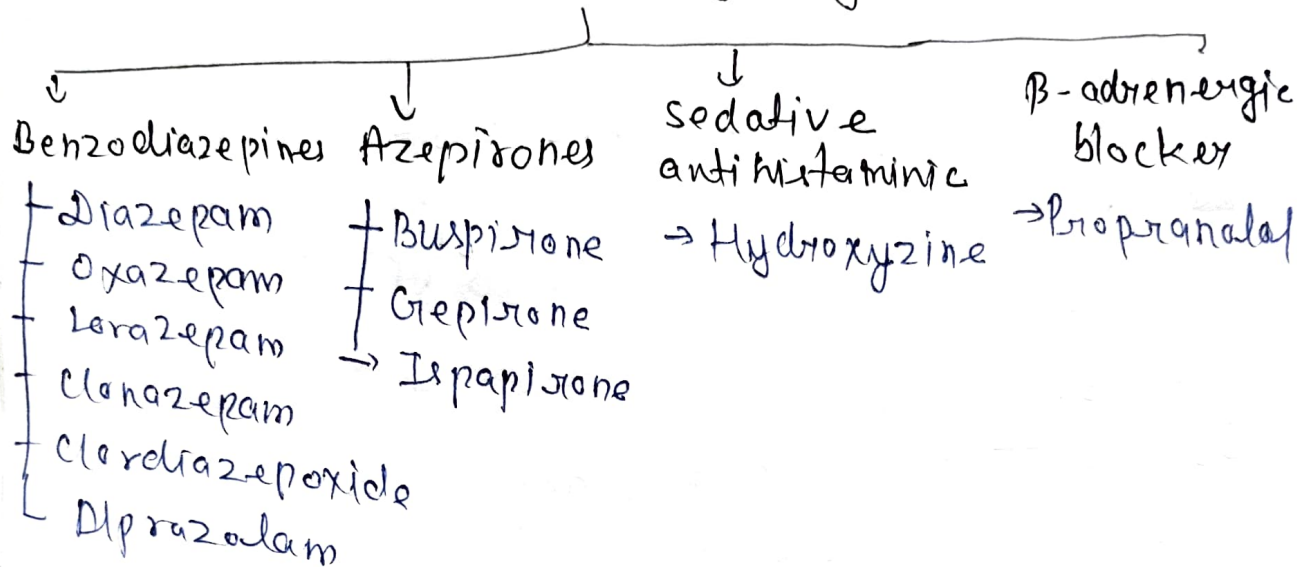 Benzodiazepines
Diazepam
Oxazepam
Lorazepam
Clonazepam
Clordiazepoxide
Alprazolam
Azepirones
Buspirone
Gepirone
→ Ispapirone
sedative
antihistaminic
→ Hydroxyzine
β-adrenergic
blocker
→ Propranalol